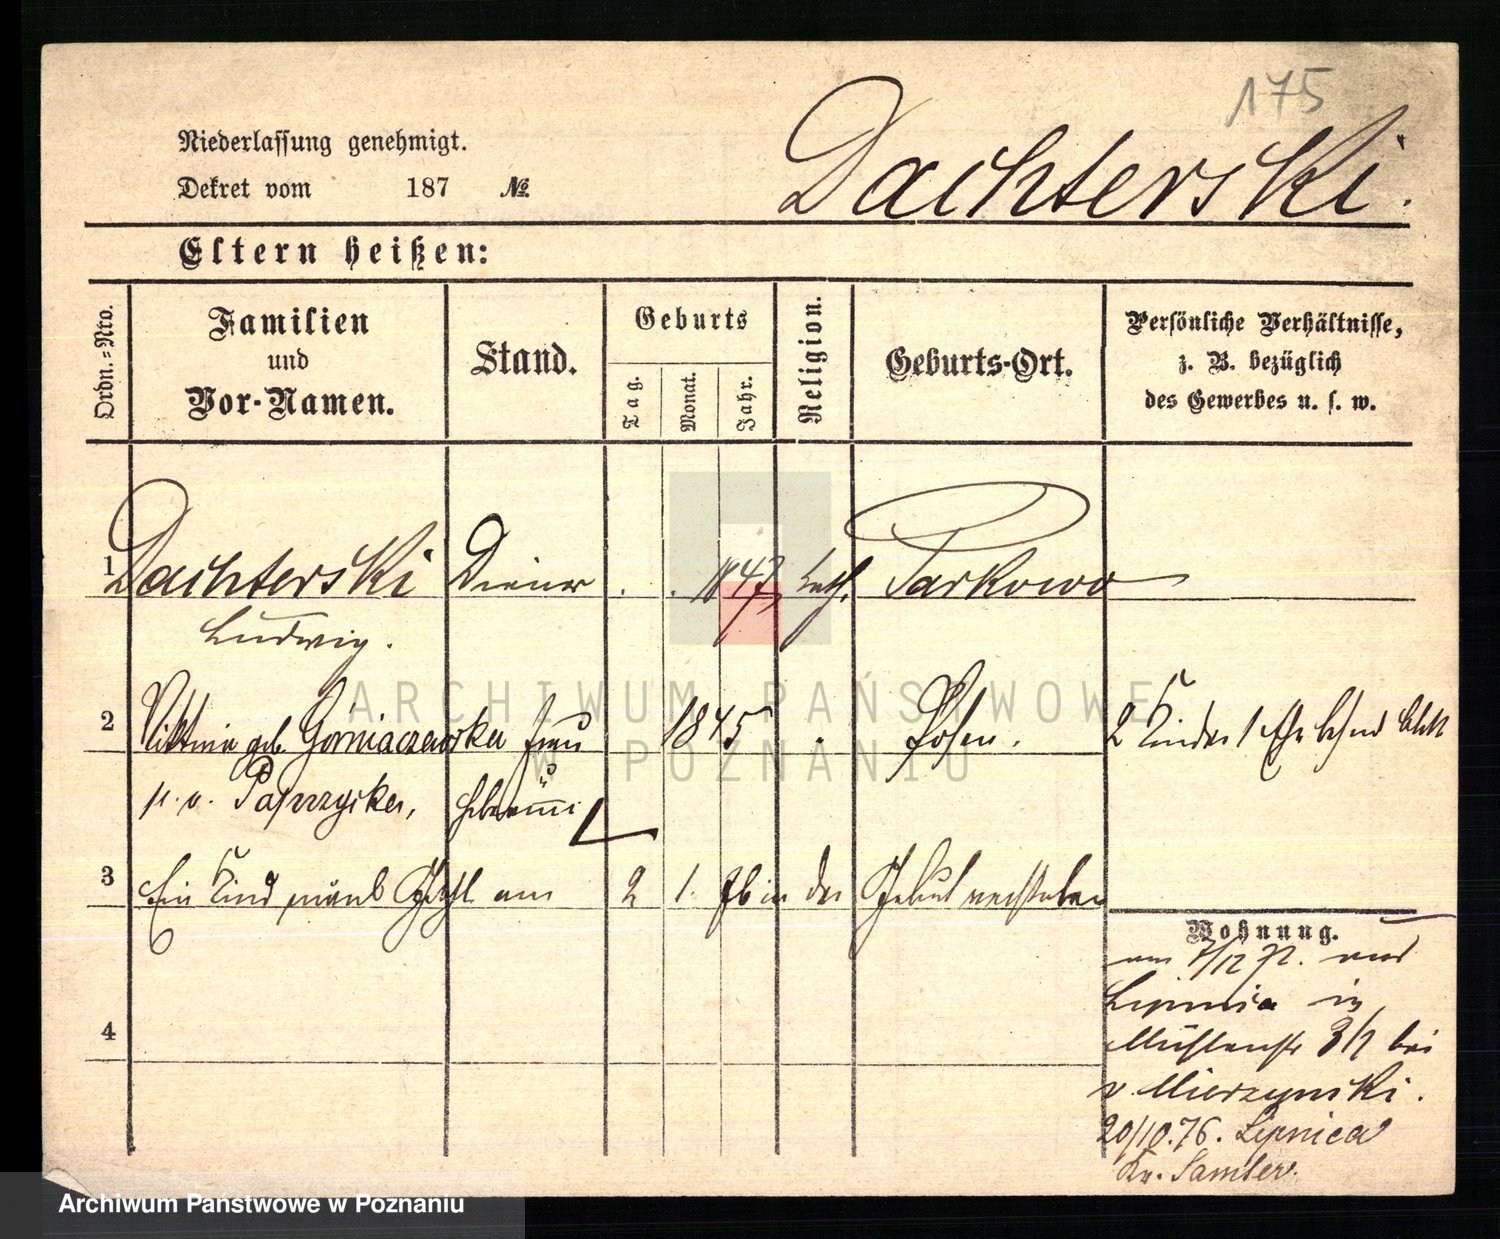 175
Niederlassung genehmigt.
Dekret vom 187 №
Dachterski.
Eltern heißen:
Ordn.=Nro.
Familien und Vor-Namen.
Stand.
Geburts
Tag.
Monat.
Jahr.
Religion.
Geburts-Ort.
Persönliche Verhältnisse,
z. B. bezüglich
des Gewerbes u. s. w.
1 Dachterski Diener . . 1847 kath. Parkowo
Ludwig.
2 geb. Górniaczewska Frau 1845 . Posen. 2 Kinder 1
3 Ein Kind am 2 1. 76 in der Geburt verstorben
Wohnung.
am 7/12 72. aus
Lipnica in
Mühlenstr 3/1 bei
v. Mierzynski.
4
20/10.76. Lipnica
Kr. Samter.
ARCHIWUM PAŃSTWOWE
W POZNANIU
Archiwum Państwowe w Poznaniu